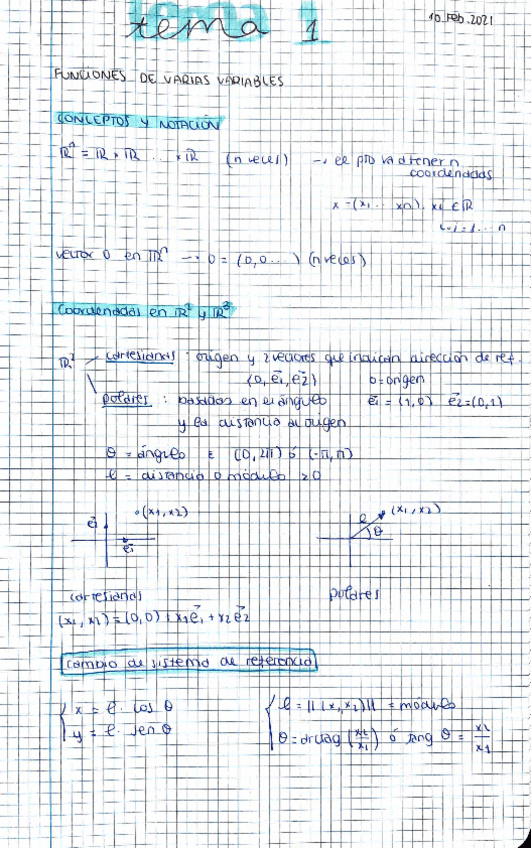 tema 1
10 Feb. 2021
FUNCIONES DE VARIAS VARIABLES
CONCEPTOS Y NOTACIÓN
ℝⁿ = ℝ × ℝ ... × ℝ (n veces) → el pto va a tener n
coordenadas
x = (x₁ ... xn). xi ∈ ℝ
i = 1 ... n
vector 0 en ℝⁿ → 0 = (0,0 ...) (n veces)
Coordenadas en ℝ² y ℝ³
ℝ² cartesianas : origen y 2 vectores que indican dirección de ref.
(0, e⃗₁, e⃗₂) 0 = origen
polares : basadas en el ángulo e⃗₁ = (1,0) e⃗₂ = (0,1)
y la distancia al origen
θ = ángulo ∈ (0, 2π) ó (-π, π)
ℓ = distancia o módulo ≥ 0
(x₁, x₂)
e⃗₁
e⃗₂
ℓ (x₁, x₂)
θ
cartesianas
polares
(x₁, x₂) = (0,0) + x₁e⃗₁ + x₂e⃗₂
cambio de sistema de referencia
x = ℓ · cos θ
y = ℓ · sen θ
ℓ = ||(x₁, x₂)|| = módulo
θ = arctag (x₂/x₁) ó tang θ = x₂/x₁